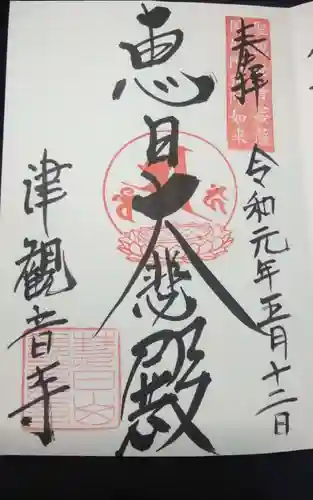 奉拝
令和元年五月十二日
恵日大悲殿
津観音寺